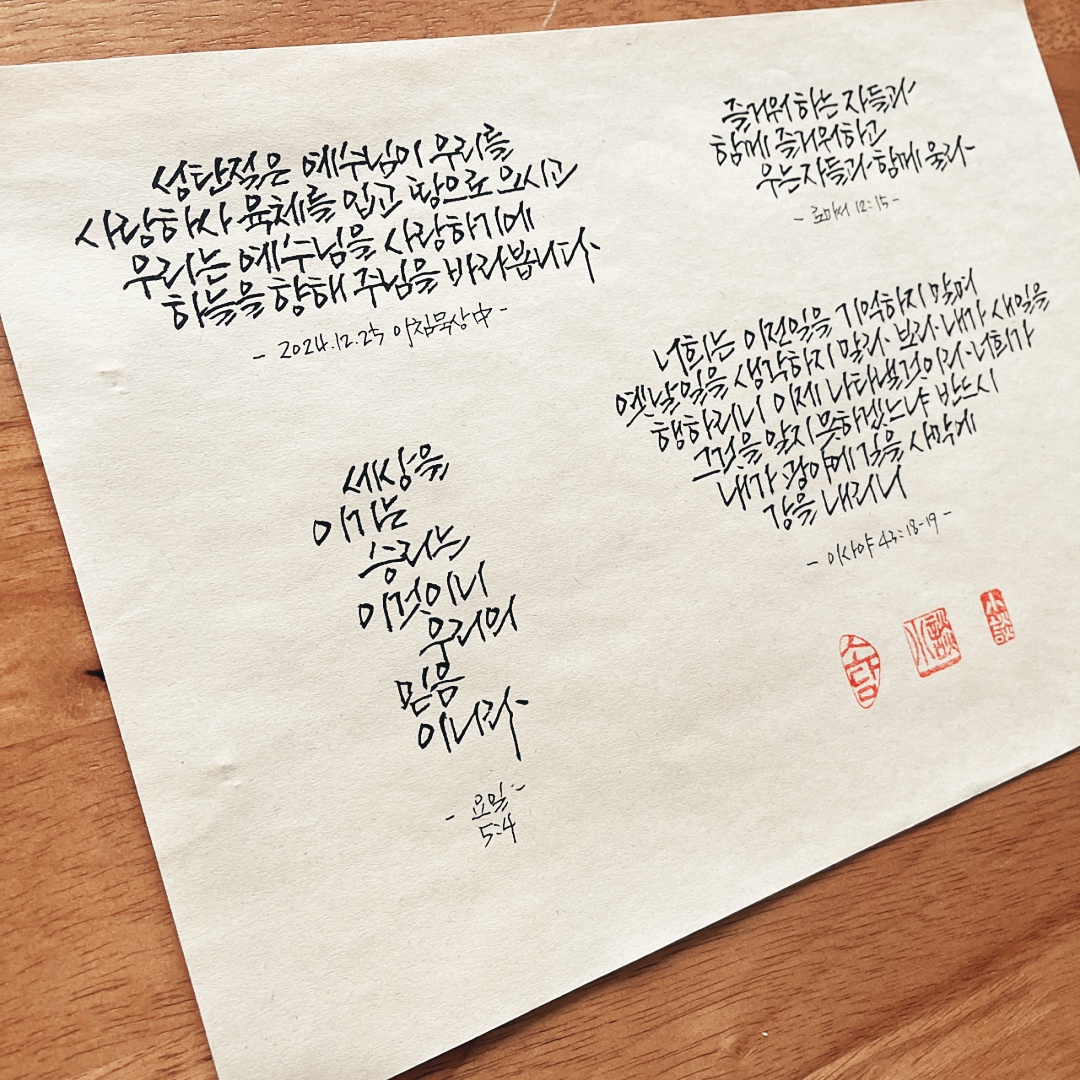 성탄절은 예수님이 우리를
사랑하사 육체를 입고 땅으로 오시고
우리는 예수님을 사랑하기에
하늘을 향해 주님을 바라봅니다.
- 2024.12.25 아침묵상中 -
즐거워하는 자들과
함께 즐거워하고
우는자들과 함께 울라
- 로마서 12:15 -
너희는 이전일을 기억하지 말며
옛날일을 생각하지 말라. 보라. 내가 새일을
행하리니 이제 나타낼것이라. 너희가
그것을 알지 못하겠느냐 반드시
내가 광야에 길을 사막에
강을 내리니
- 이사야 43:18-19 -
세상을
이기는
승리는
이것이니
우리의
믿음
이니라.
- 요일 -
5:4
小談